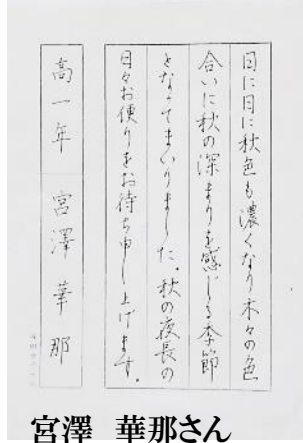 日に日に秋色も濃くなり木々の色
合いに秋の深まりを感じる季節
となってまいりました。秋の夜長の
日々お便りをお待ち申し上げます。
高一年 宮澤華那
宮澤 華那さん